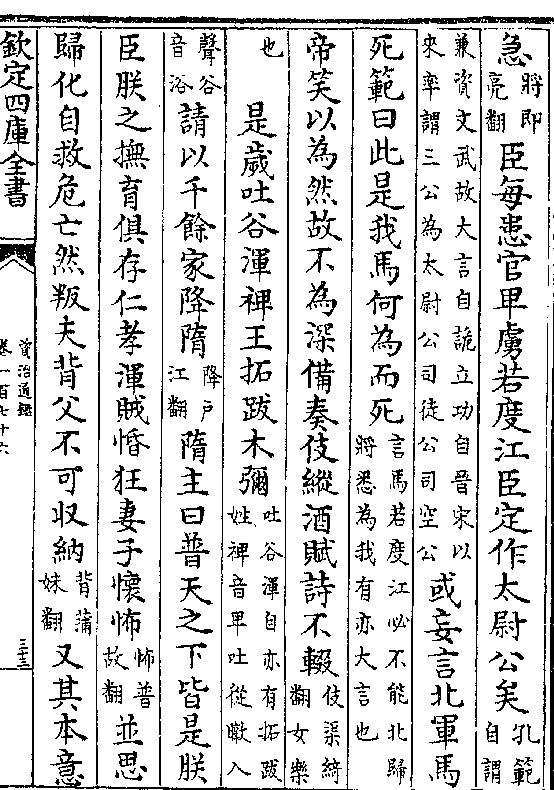 急將即亮翻臣每患官卑虜若度江臣定作太尉公矣孔範自謂
兼資文武故大言自詭立功自晉宋以來率謂三公為太尉公司徒公司空公或妄言北軍馬
死範曰此是我馬何為而死言馬若度江必不能北歸將悉為我有亦大言也
帝笑以為然故不為深備奏伎縱酒賦詩不輟伎渠綺翻女樂
也 是歲吐谷渾裨王拓跋木彌吐谷渾自亦有拓跋姓裨音卑吐從暾入
聲谷音浴請以千餘家降隋降戶江翻隋主曰普天之下皆是朕
臣朕之撫育俱存仁孝渾賊惛狂妻子懷怖怖普故翻並思
歸化自救危亡然叛夫背父不可収納背蒲妹翻又其本意
欽定四庫全書
資治通鑑
卷一百七十六
三十三